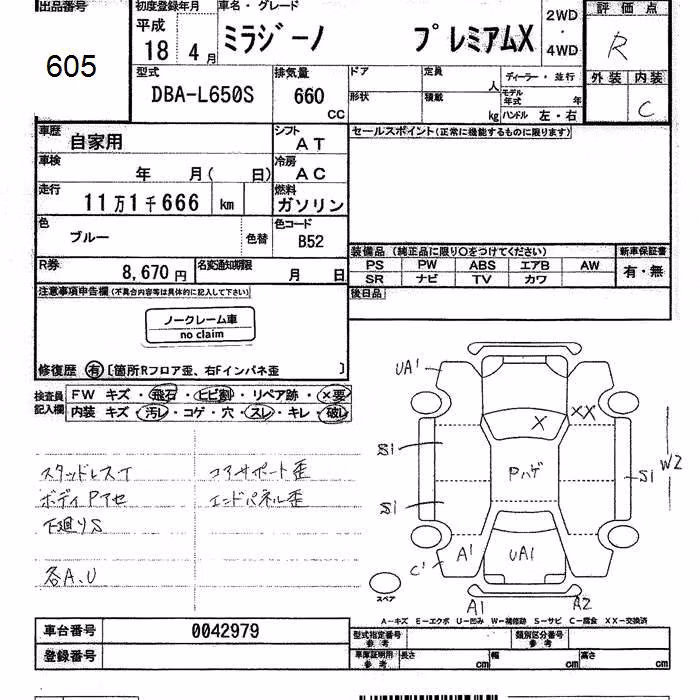 出品番号 初度登録年月 車名・グレード 評価点
605 平成 18 4月 ミラジーノ プレミアムX 2WD・4WD R
外装 内装
C
型式 排気量 ドア 定員 人 ディーラー・並行
DBA-L650S 660 CC 形状 積載 kg モデル年式 年 ハンドル 左・右
車歴 自家用 シフト AT セールスポイント(正常に機能するものに限ります)
車検 年 月( 日) 冷房 AC
走行 11万1千666 km 燃料 ガソリン
色 ブルー 色替 色コード B52
装備品 (純正品に限り○をつけてください) 新車保証書
PS PW ABS エアB AW 有・無
SR ナビ TV カワ
R券 8,670円 名変通知期限 月 日
後日品
注意事項申告欄(不具合内容等は具体的に記入して下さい)
ノークレーム車
no claim
修復歴 有 [箇所Rフロア歪、右Fインパネ歪 ]
検査員記入欄 FW キズ・飛石・ヒビ割・リペア跡・×要
内装 キズ・汚レ・コゲ・穴・スレ・キレ・破レ
スタッドレスT コアサポート歪
ボディPアセ エンドパネル歪
下廻りS
各A、U
UA1
X XX
S1 Pハゲ S1 W2
S1
A1 UA1
C1
スペア A1 A2
A-キズ E-エクボ U-凹み W-補修跡 S-サビ C-腐食 XX-交換済
車台番号 0042979 型式指定番号 参考 類別区分番号 参考
登録番号 車庫証明用 参考 長さ cm 幅 cm 高さ cm